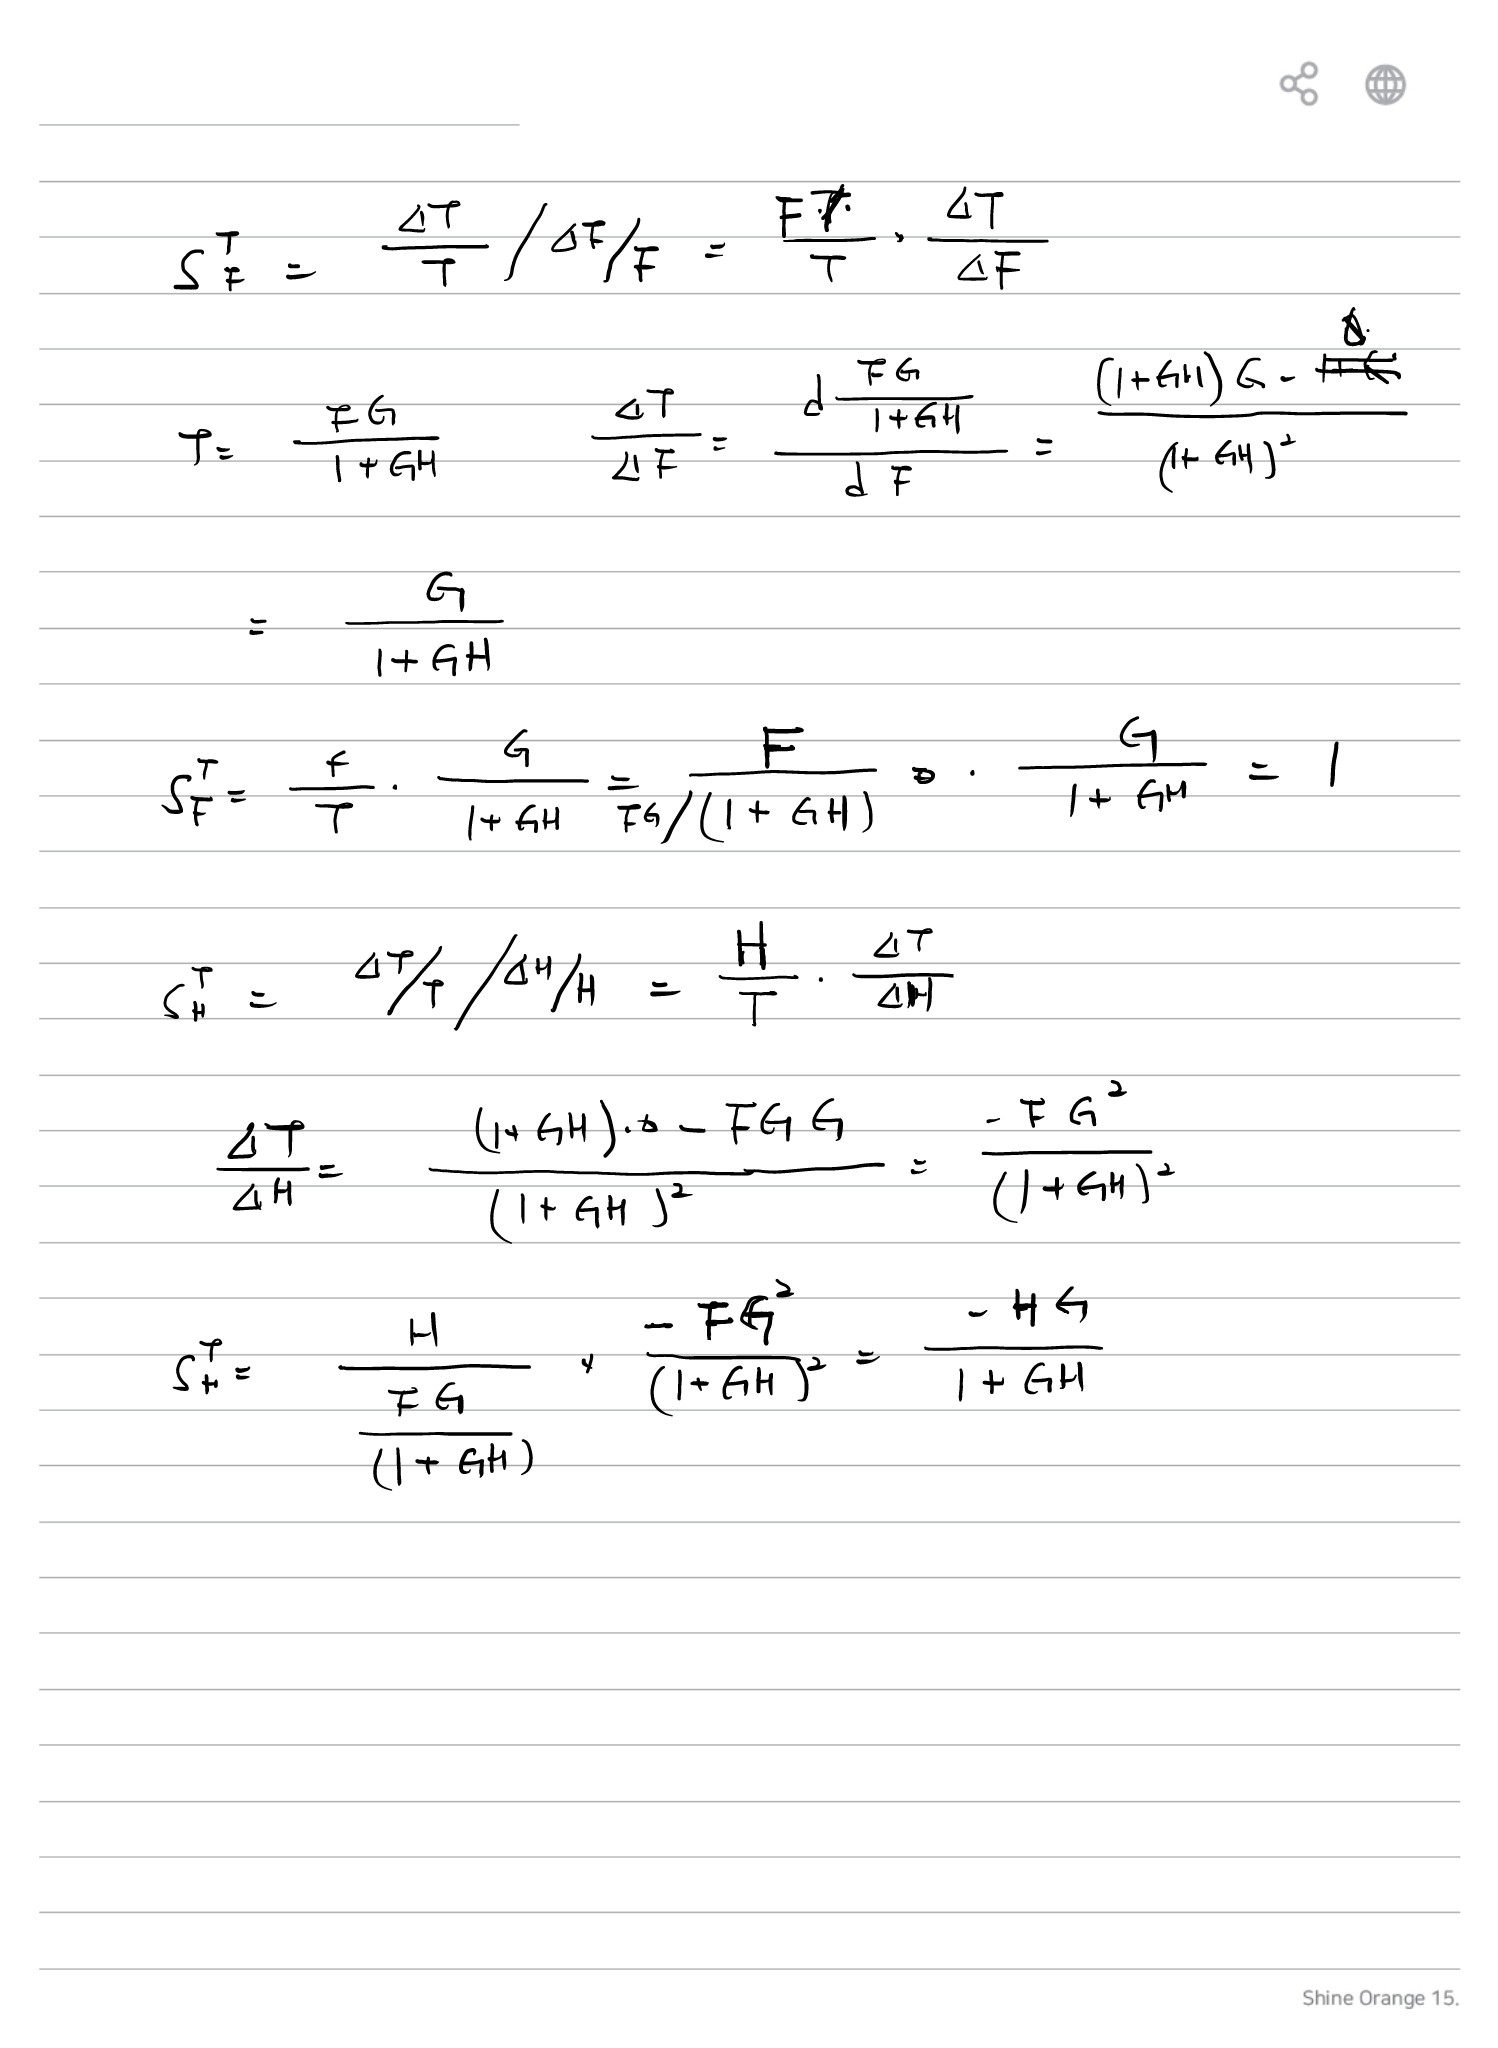 S_F^T = ΔT/T / ΔF/F = F/T · ΔT/ΔF
T = FG/(1+GH)   ΔT/ΔF = d FG/(1+GH) / dF = (1+GH)G - / (1+GH)²
= G/(1+GH)
S_F^T = F/T · G/(1+GH) = F / FG/(1+GH) · G/(1+GH) = 1
S_H^T = ΔT/T / ΔH/H = H/T · ΔT/ΔH
ΔT/ΔH = ((1+GH)·0 - FGG)/(1+GH)² = -FG²/(1+GH)²
S_H^T = H / (FG/(1+GH)) × -FG²/(1+GH)² = -HG/(1+GH)
Shine Orange 15.